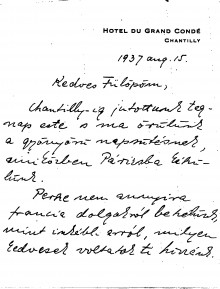 HOTEL DU GRAND CONDÉ
CHANTILLY
1937 aug. 15.
Kedves Fülöpöm,
Chantilly-ig jutottunk teg-
nap este s ma örülünk
a gyönyörű napsütésnek,
amiközben Párizsba
Persze nem annyira
francia dolgokról beszélünk
mint inkább arról, milyen
kedvesek voltatok ti hozzánk.